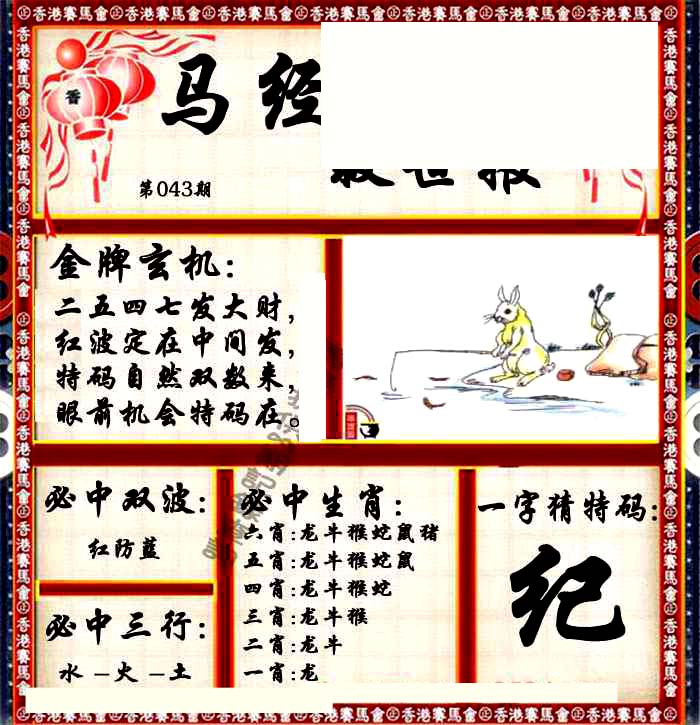 正香港賽馬會正香港賽馬會正香港賽馬會正香港賽馬會正香港賽馬會正香港賽馬會
马经
救世报
第043期
金牌玄机:
二五四七发大财,
红波定在中间发,
特码自然双数来,
眼前机会特码在。
必中双波:
红防蓝
必中三行:
水-火-土
必中生肖:
六肖:龙牛猴蛇鼠猪
五肖:龙牛猴蛇鼠
四肖:龙牛猴蛇
三肖:龙牛猴
二肖:龙牛
一肖:龙
一字猜特码:
纪